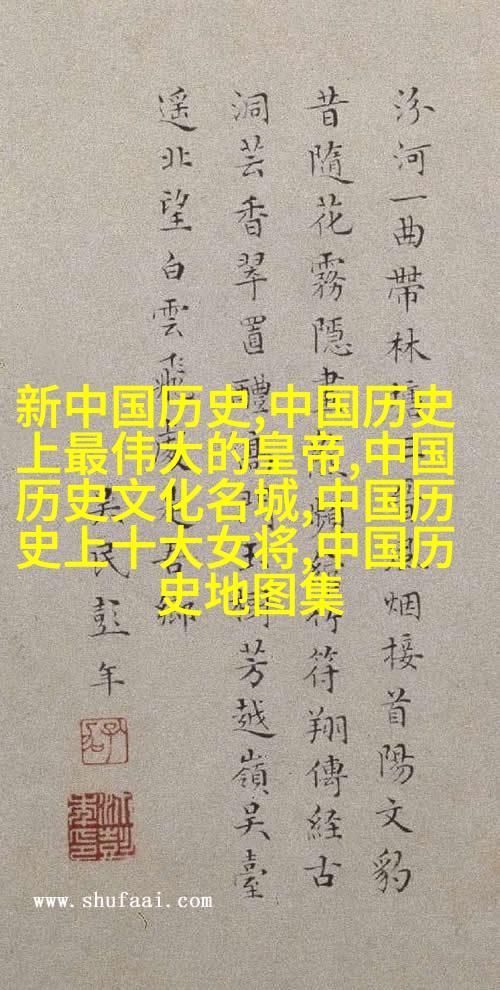 新中国历史,中国历史
上最伟大的皇帝,中国
历史文化名城,中国历
史上十大女将,中国历
史地图集
汾河一曲帶林烟接首陽文豹
昔隨花霧隱符翔傳経古
洞芸香翠置醴芳越嶺吴臺
遥北望白雲飛吾鄉
民彭年
www.shufaai.com